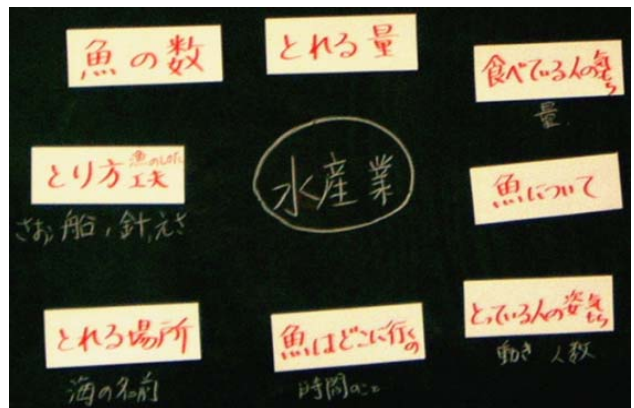 魚の数
とれる量
食べている人の気もち
量
とり方工夫
漁のしかた
さお,船,針,えさ
水産業
魚について
とれる場所
海の名前
魚はどこに行くの
時間のこと
とっている人の姿気もち
動き 人数